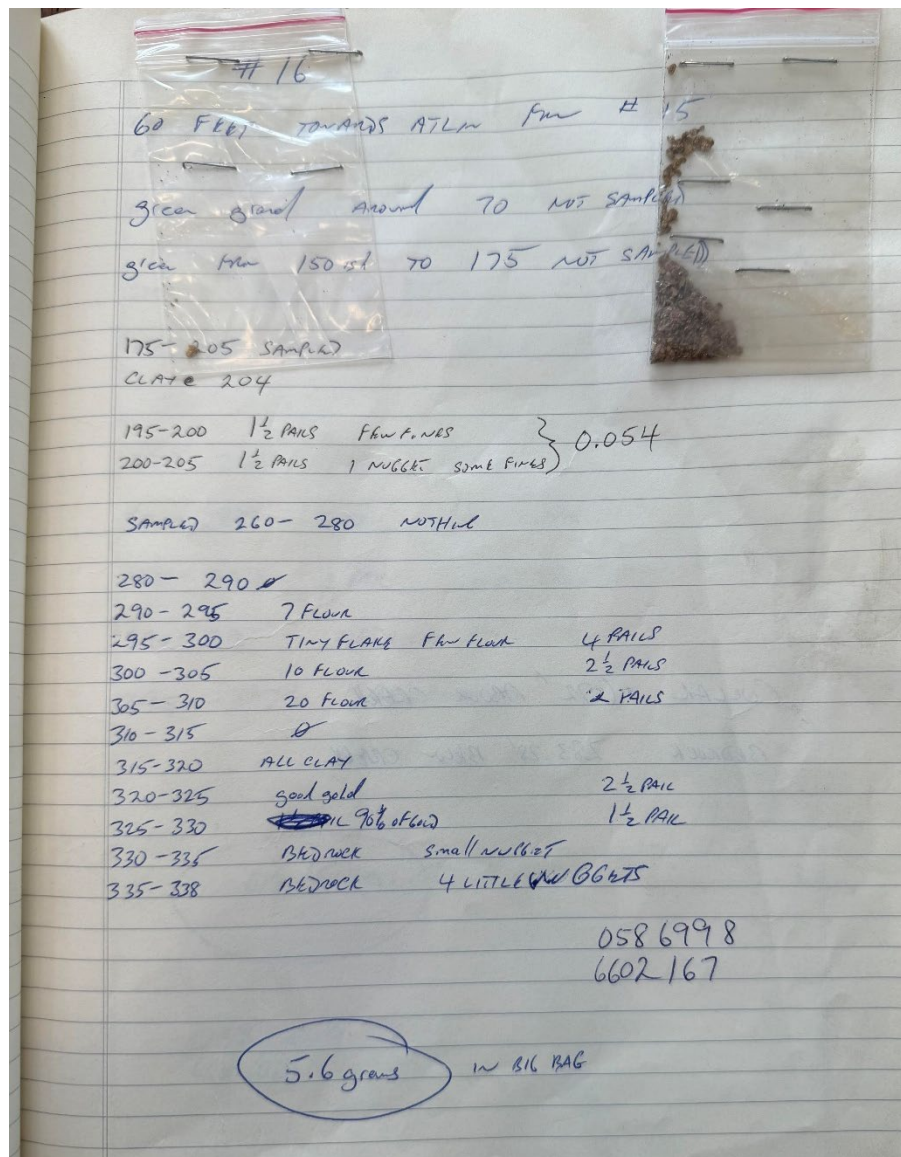 # 16
60 FEET TOWARDS ATLIN From # 15
green gravel Around 70 NOT SAMPLED
green From 150 ish TO 175 NOT SAMPLED
175-205 SAMPLED
CLAY @ 204
195-200 1 1/2 PAILS FEW FINES } 0.054
200-205 1 1/2 PAILS 1 NUGGET SOME FINES
SAMPLED 260-280 NOTHING
280-290 Ø
290-295 7 FLOUR
295-300 TINY FLAKE FEW FLOUR 4 PAILS
300-305 10 FLOUR 2 1/2 PAILS
305-310 20 FLOUR 2 PAILS
310-315 Ø
315-320 ALL CLAY
320-325 good gold 2 1/2 PAIL
325-330 90% OF GOLD 1 1/2 PAIL
330-335 BEDROCK Small NUGGET
335-338 BEDROCK 4 LITTLE NUGGETS
0586998
6602167
5.6 grams IN BIG BAG